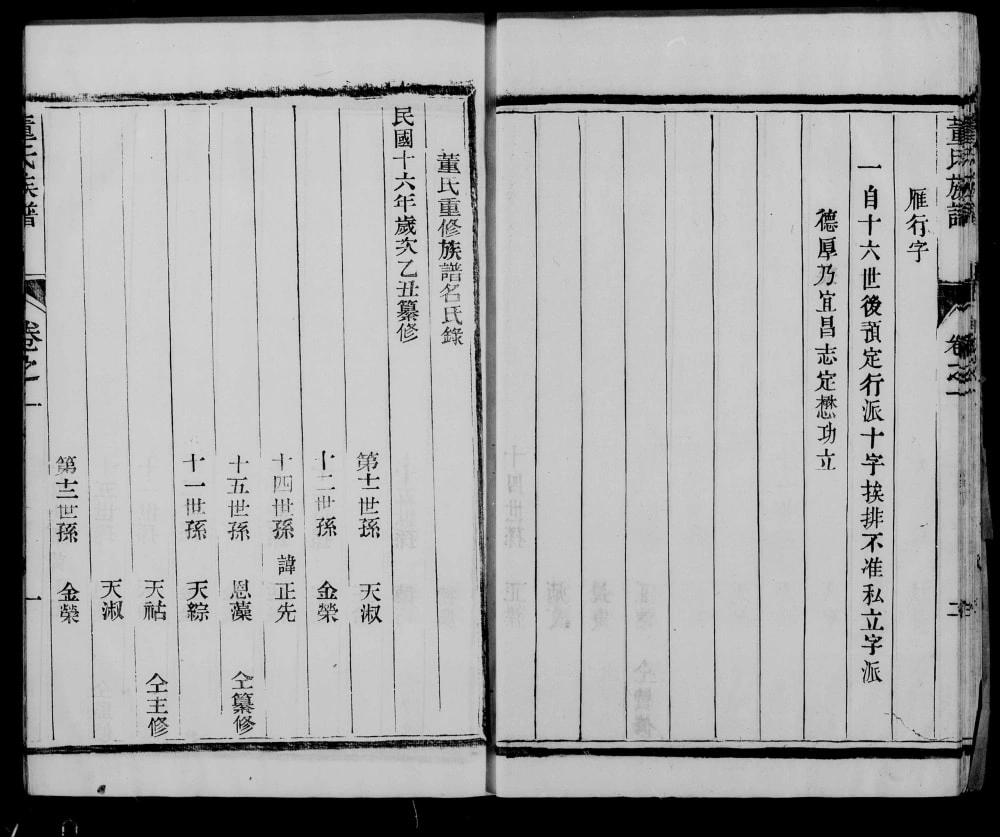 董氏族譜
卷之一
二
雁行字
一自十六世後預定行派十字挨排不准私立字派
德厚乃宜昌志定懋功立
董氏重修族譜名氏錄
民國十六年歲次乙丑纂修
第十一世孫 天淑
十二世孫 金榮
十四世孫 諱正先
十五世孫 恩藻 仝纂修
十一世孫 天綜
天祜 仝主修
天淑
第十二世孫 金榮
董氏族譜
卷之一
一